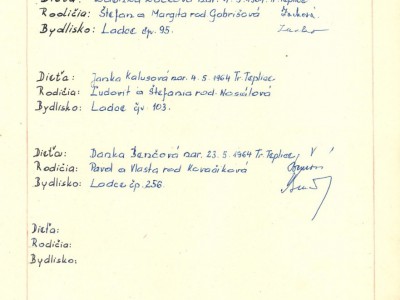 Rodičia: Štefan a Margita rod Gobrišová
Bydlisko: Ladce čp. 95.
Dieťa: Janka Kalusová nar. 4. 5. 1964 Tr. Teplice
Rodičia: Ľudovít a Štefania rod. Nosálová
Bydlisko: Ladce čp. 103.
Dieťa: Danka Benčová nar. 23. 5. 1964 Tr. Teplice
Rodičia: Pavol a Vlasta rod Kovačiková
Bydlisko: Ladce čp. 256.
Dieťa:
Rodičia:
Bydlisko: